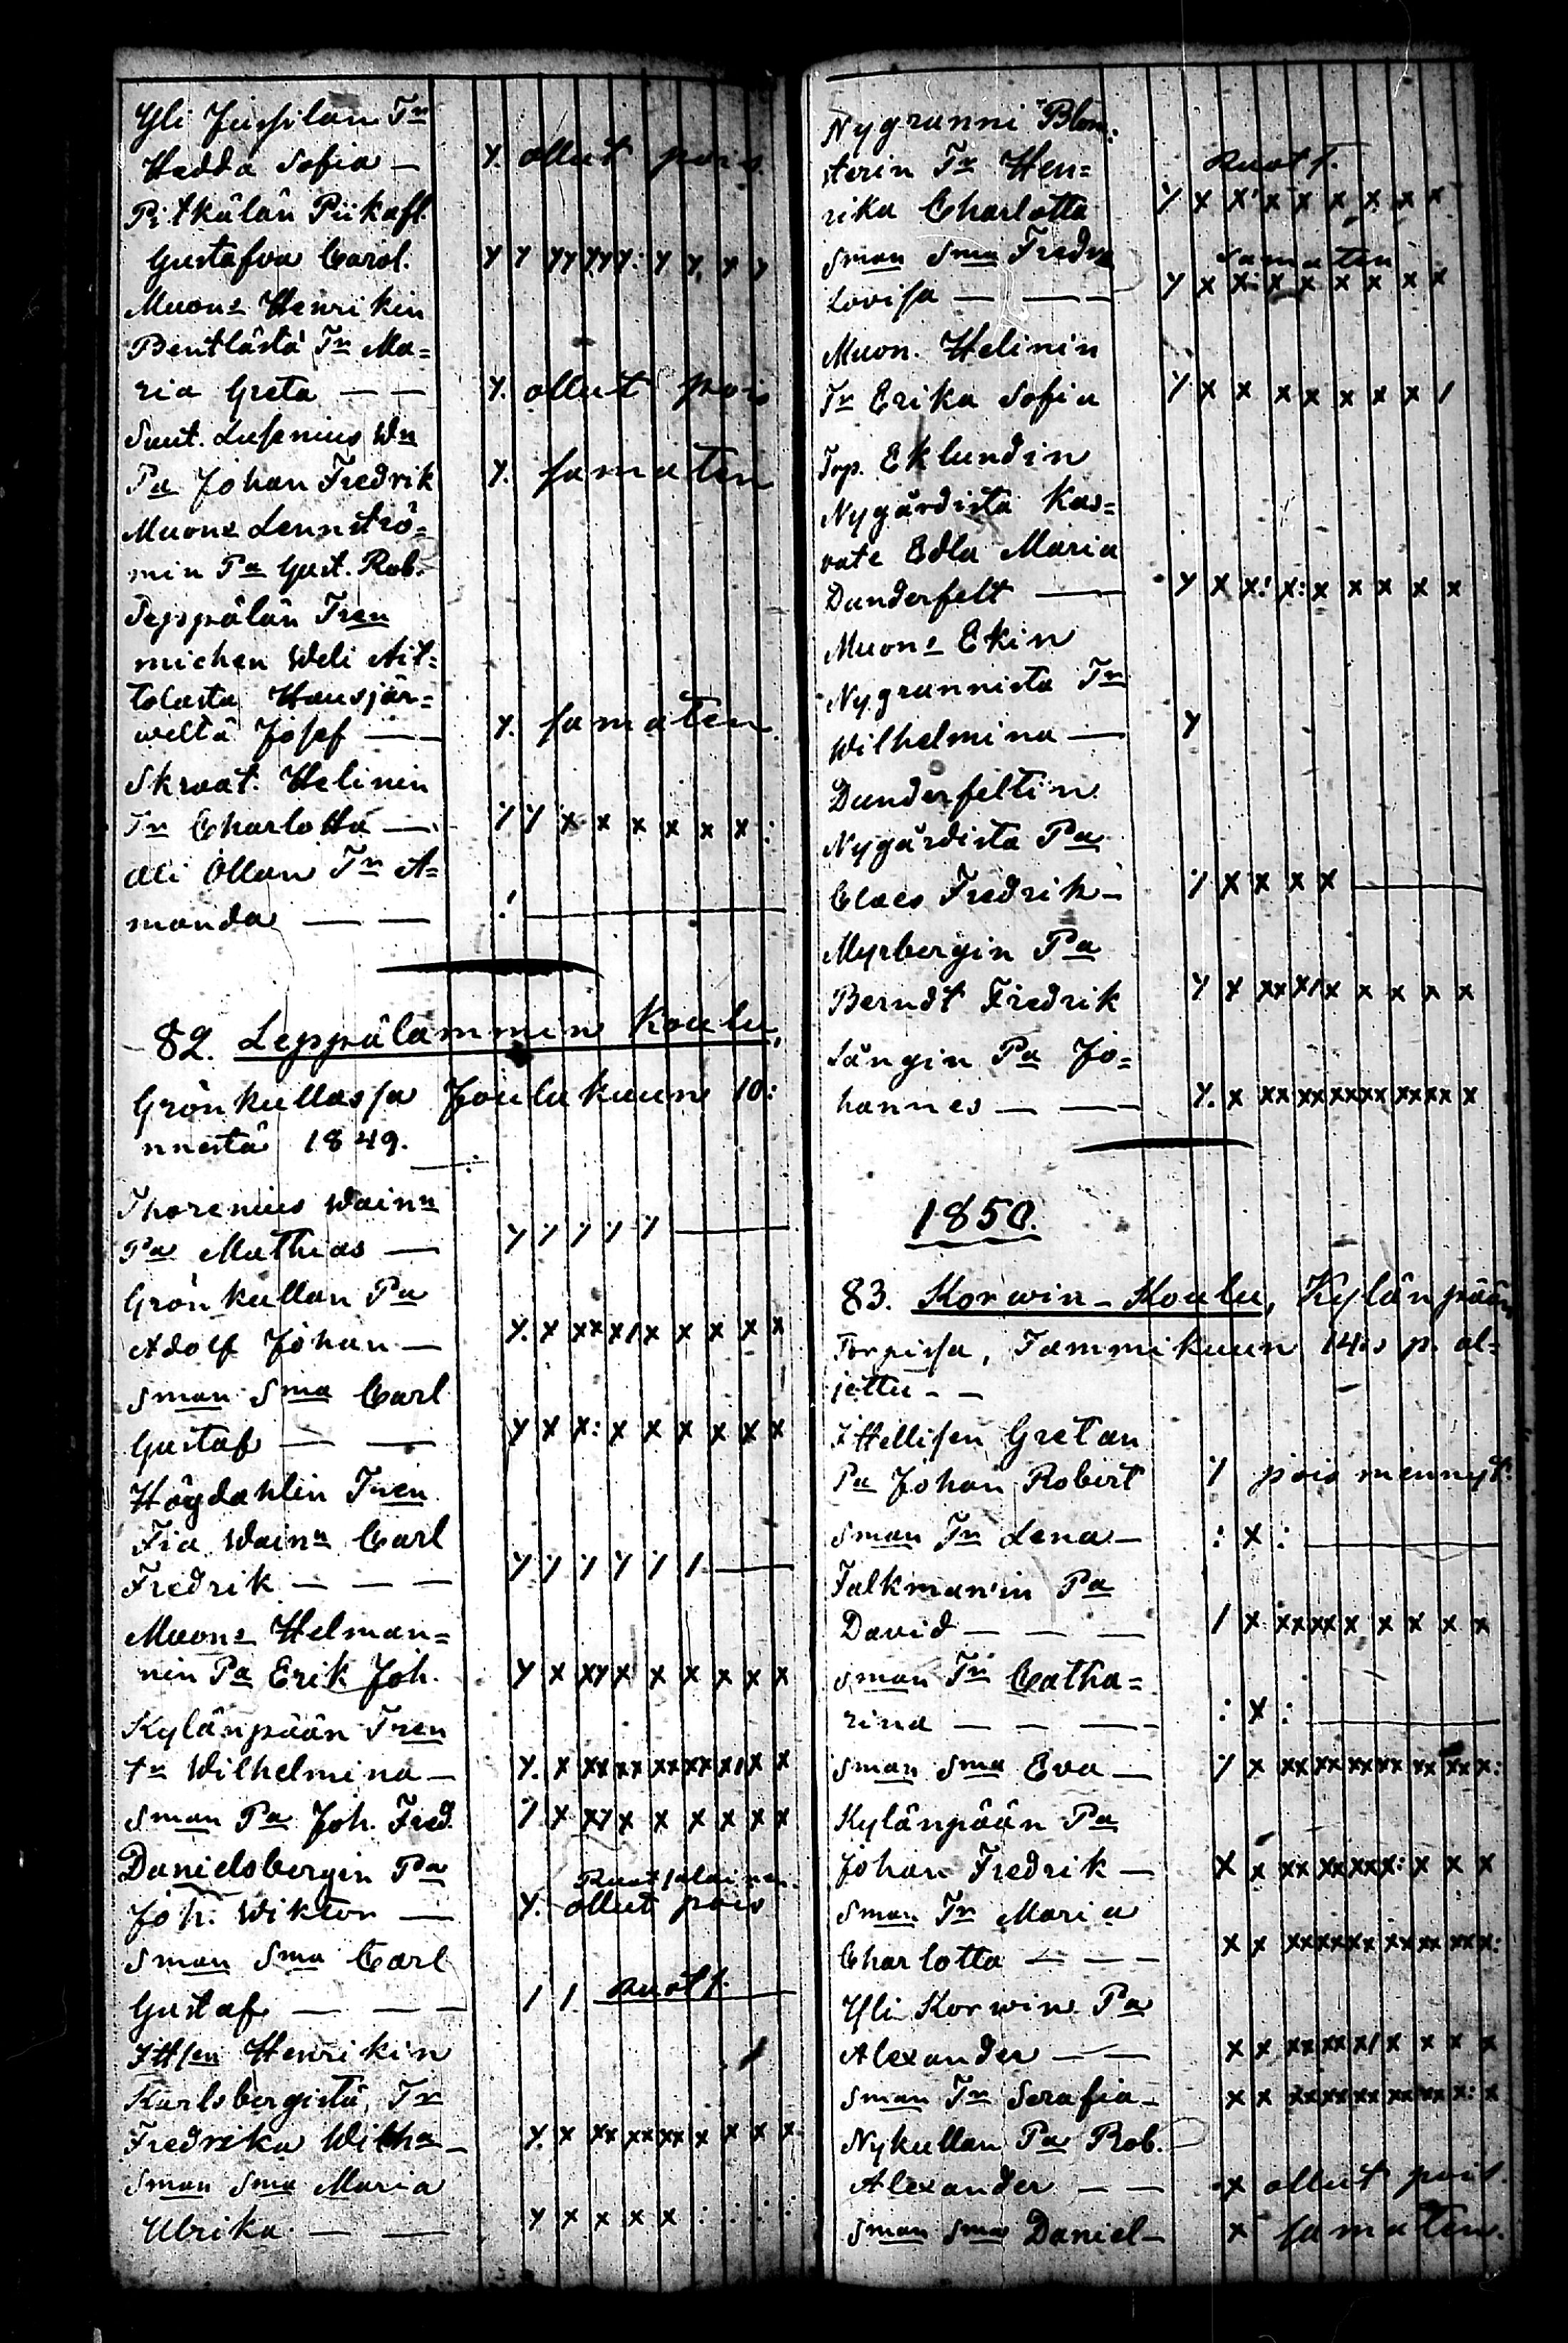 Yli Jussilan Tr
Hedda Sofia — y. ollut pois
Pitkälän Piikafl.
Gustafva Carol. y y yy yyy: y y, y y
Muon= Henrikin
Bentlästä Tr Ma=
ria Greta — — y. ollut pois
Suut. Lusenius Wn
Pa Johan Fredrik y. samaten
Muon= Lennströ=
min Pa Gust. Rob.
Seppälän Tren
michen Weli Ait=
tolasta Hausjär=
weltä Josef — y. samaten
Skraat. Helinin
Tr Charlotta — y y x x x x x x :
Ali Ollan Tr A=
manda — — :/ —
82. Leppälammin Koulu,
Grönkullassa Joulukuun 10:
nnestä 1849.
Thorenius Wain
Pa Mathias — y y y y y —
Grönkullan Pa
Adolf Johan — y. x xx x/ x x x x x
Sman Sma Carl
Gustaf — — y x x: x x x x x x
Högdahlin Tren
Fia Wain Carl
Fredrik — — — y y y y y / —
Muon= Helman=
nin Pa Erik Joh. y x xy x x x x x x
Kylänpään Tren
tr Wilhelmina — y. x xx xx xx xx x/ x x
Sman Pa Joh. Fred. y x xy x x x x x x
Danielsbergin Pa Ruotsalainen.
Joh. Wiktor — y. ollut pois
Sman Sma Carl
Gustaf — — — / / Ruots.
Henrikin
Karlsbergistä, Tr
Fredrika Wilha — y. x xx xx xx x x x x
Sman Sma Maria
Ulrika — — y x x x x : : : :
Nygranni Blom:
sterin Tr Hen= Ruots.
rika Charlotta y x x' x x x x x x
Sman Sma Fredra samaten
Lovisa — — y x x: x x x x x x
Muon. Helinin
Tr Erika Sofia y x x x x x x x /
Torp. Eklundin
Nygårdista Kas=
vate Edla Maria
Dunderfelt — y x x! x: x x x x x
Muon= Ekin
Nygrannista Tr
Wilhelmina — y
Dunderfeltin
Nygårdista Pa
Claes Fredrik — y x x x x —
Myrbergin Pa
Berndt Fredrik y x xx x/ x x x x x
Långin Pa Jo=
hannes — — y. x xx xx xx xx xx xx x
1850.
83. Korwin-Koulu, Kylänpään
Torpissa, Tammikuun 14:s p. al=
jettu — —
Gretan
Pa Johan Robert y pois mennyt.
Sman Tr Lena — : x : —
Falkmanin Pa
David — — — / x xx xx x x x x x
Sman Tr Catha=
rina — — — : x : —
Sman Sma Eva — y x xx xx xx xx xx xx x:
Kylänpään Pa
Johan Fredrik — x x xx xx xx x: x x x
Sman Tr Maria
Charlotta — — — x x xx xx xx xx xx xx x:
Yli Korwin Pa
Alexander — — x x xx xx x/ x x x x
Sman Tr Serafia — x x xx xx xx xx xx x: x
Nykullan Pa Rob.
Alexander — — x ollut pois.
Sman Sma Daniel — x samaten.